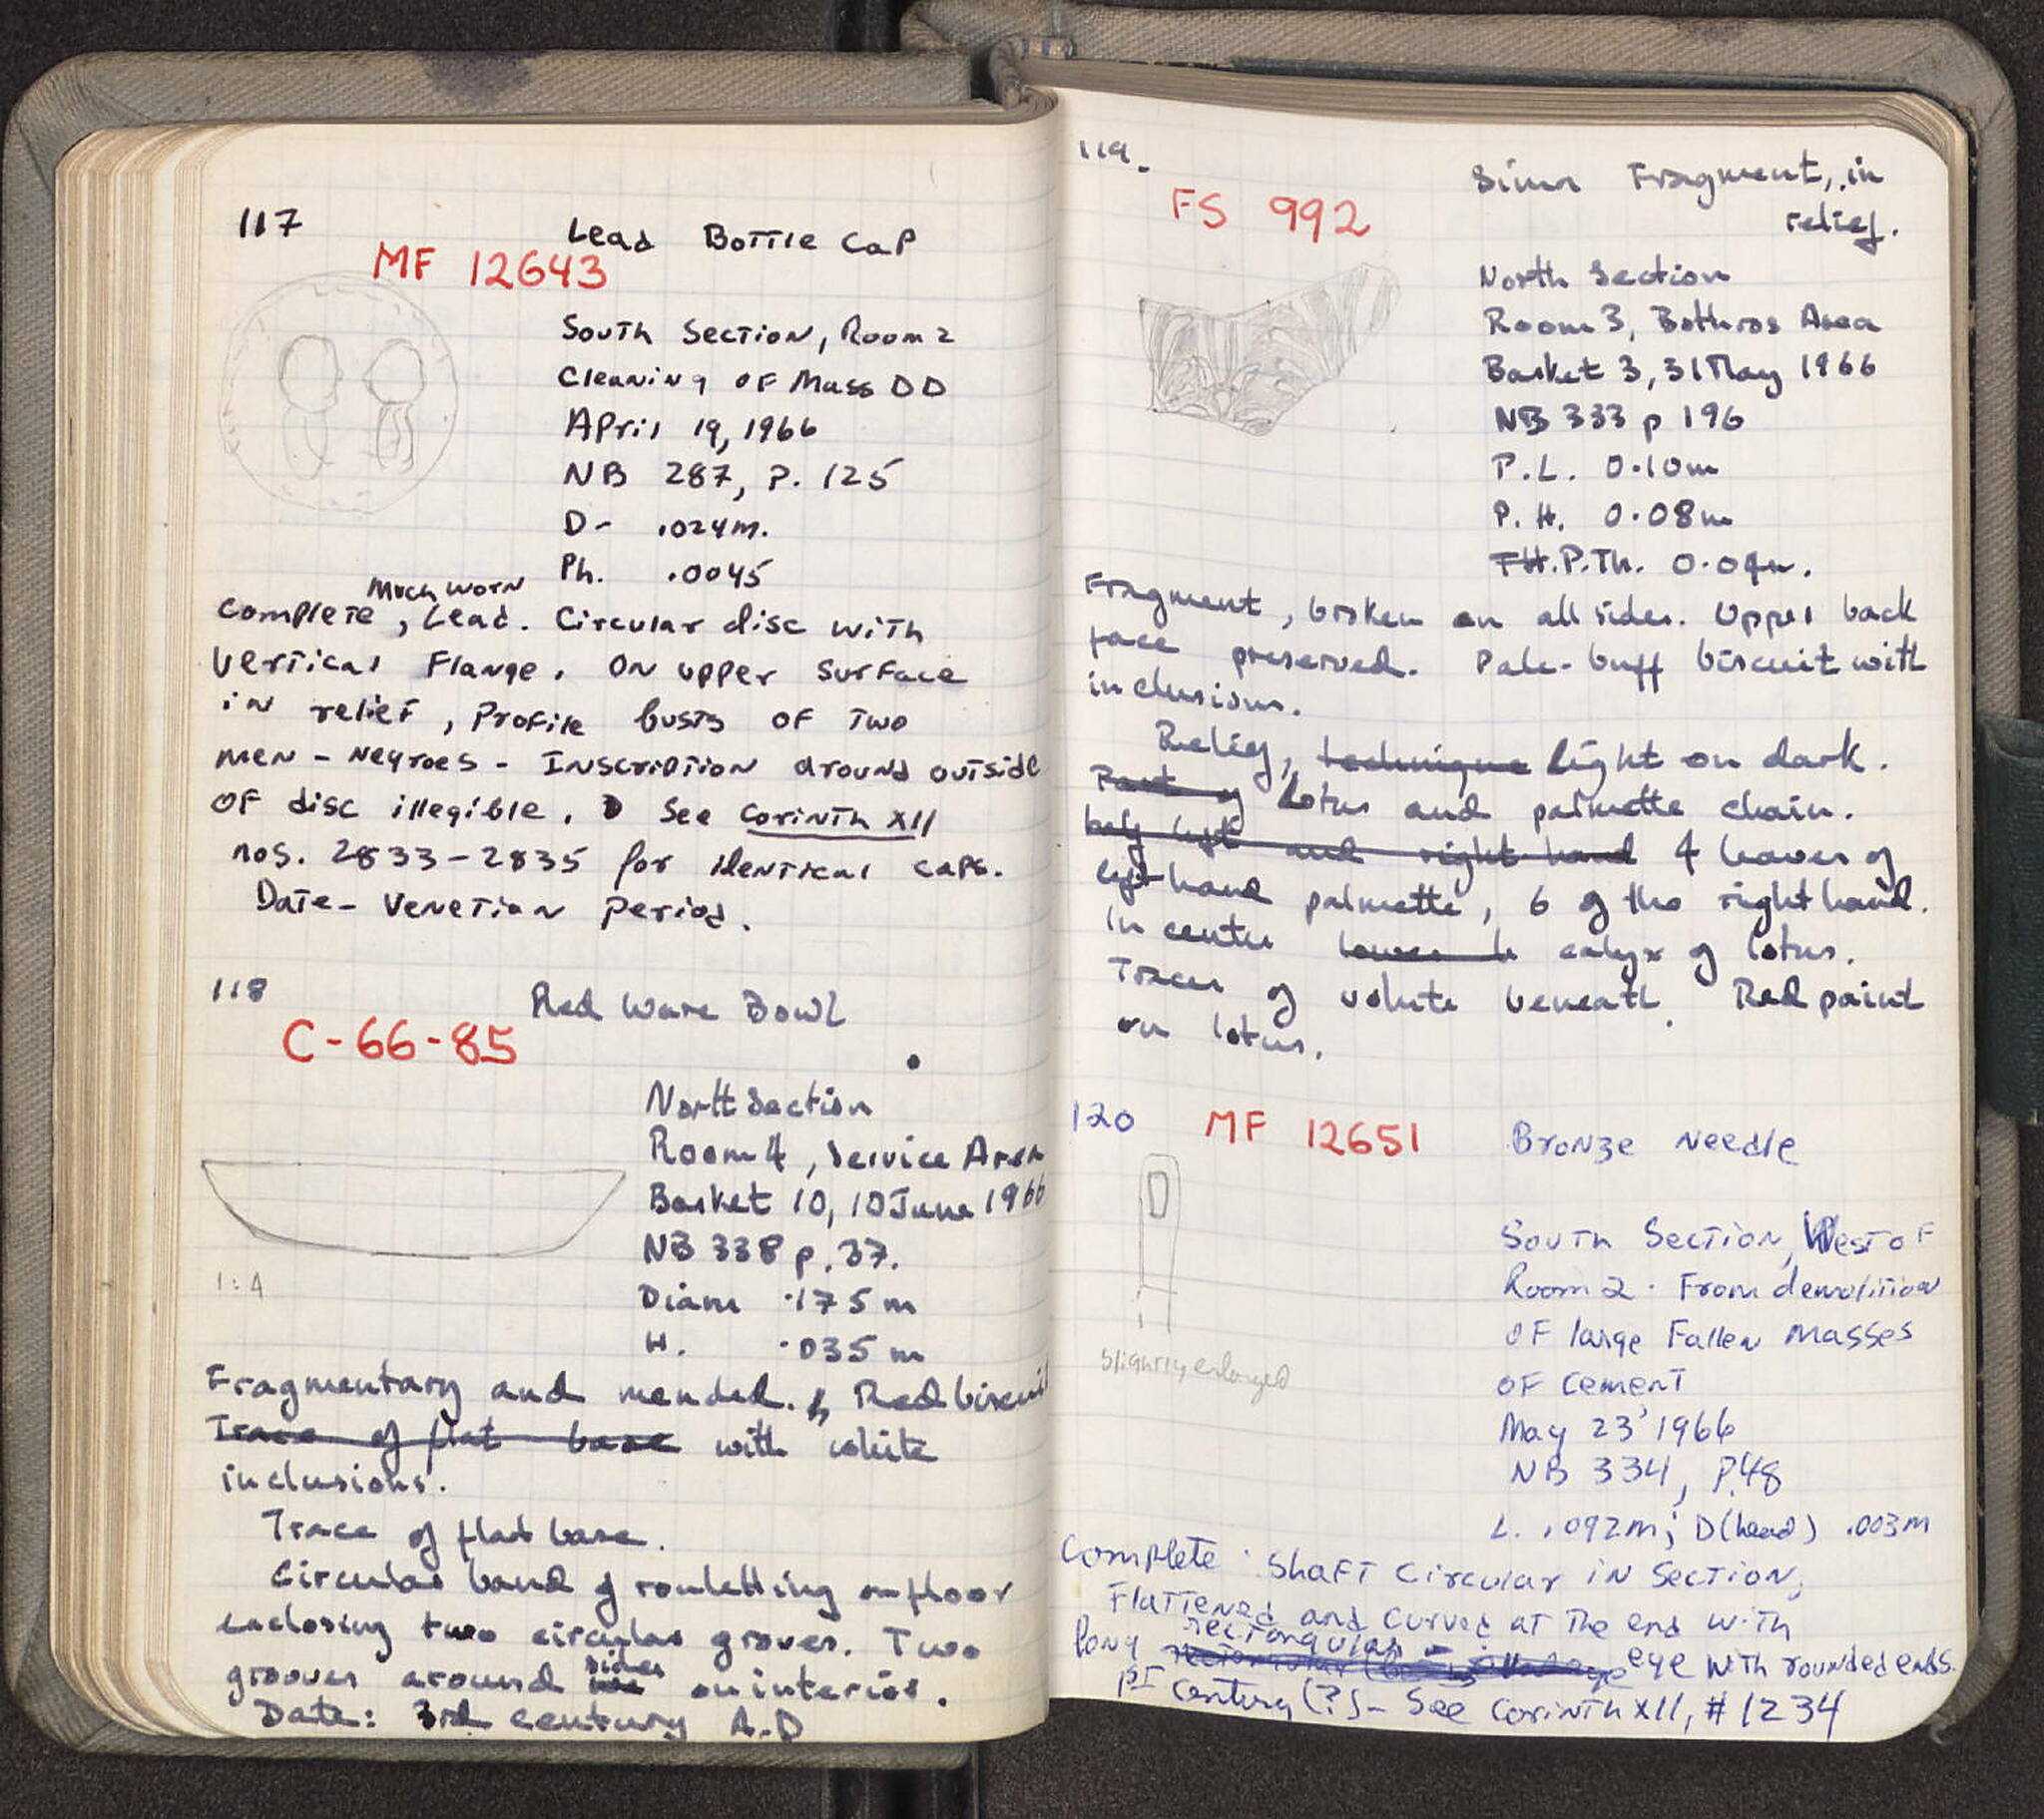 117
Lead Bottle Cap
MF 12643
South Section, Room 2
Cleaning of Mass DD
April 19, 1966
NB 287, P. 125
D- .024m.
Ph. .0045
Much worn
Complete, Lead. Circular disc with
vertical Flange. On upper surface
in relief, Profile busts of Two
men - Negroes - Inscription around outside
of disc illegible. See Corinth XII
nos. 2833-2835 for identical caps.
Date- Venetian Period.
118
Red Ware Bowl
C-66-85
North Section
Room 4, Service Area
Basket 10, 10 June 1966
NB 338 p. 37.
1:4
Diam .175 m
H. .035 m
Fragmentary and mended. Red biscuit
Trace of flat base with white
inclusions.
Trace of flat base.
Circular band of rouletting on floor
enclosing two circular groves. Two
grooves around sides on interior.
Date: 3rd century A.D
119.
Sima Fragment, in
relief.
FS 992
North Section
Room 3, Bothros Area
Basket 3, 31 May 1966
NB 333 p 196
P.L. 0.10m
P.H. 0.08m
P.Th.
Fragment, broken on all sides. Upper back
face preserved. Pale-buff biscuit with
inclusions.
Relief, technique light on dark.
Part of Lotus and palmette chain.
half left and right hand 4 leaves of
left hand palmette, 6 of the right hand.
In center calyx of lotus.
Traces of volute beneath. Red paint
on lotus.
120
MF 12651
Bronze Needle
South Section, West of
Room 2. From demolition
of large Fallen Masses
of cement
slightly enlarged
May 23 1966
NB 334, P.48
L. .092m; D(head) .003m
Complete. Shaft Circular in Section,
Flattened and curved at the end with
rectangular
long eye with rounded ends.
1st century (?) - See Corinth XII, #1234